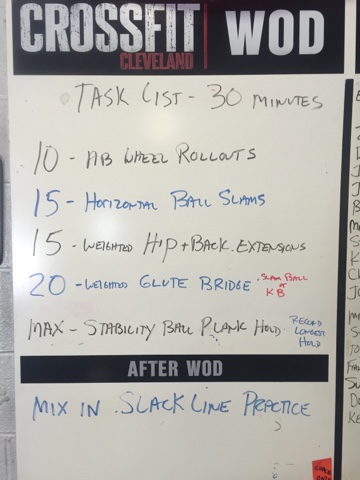 CROSSFIT WOD
CLEVELAND
TASK LIST - 30 MINUTES
10 - AB WHEEL ROLLOUTS
15 - HORIZONTAL BALL SLAMS
15 - WEIGHTED HIP + BACK EXTENSIONS
20 - WEIGHTED GLUTE BRIDGE
SLAM BALL
or
KB
MAX - STABILITY BALL PLANK HOLD
RECORD
LONGEST
HOLD
AFTER WOD
MIX IN SLACK LINE PRACTICE